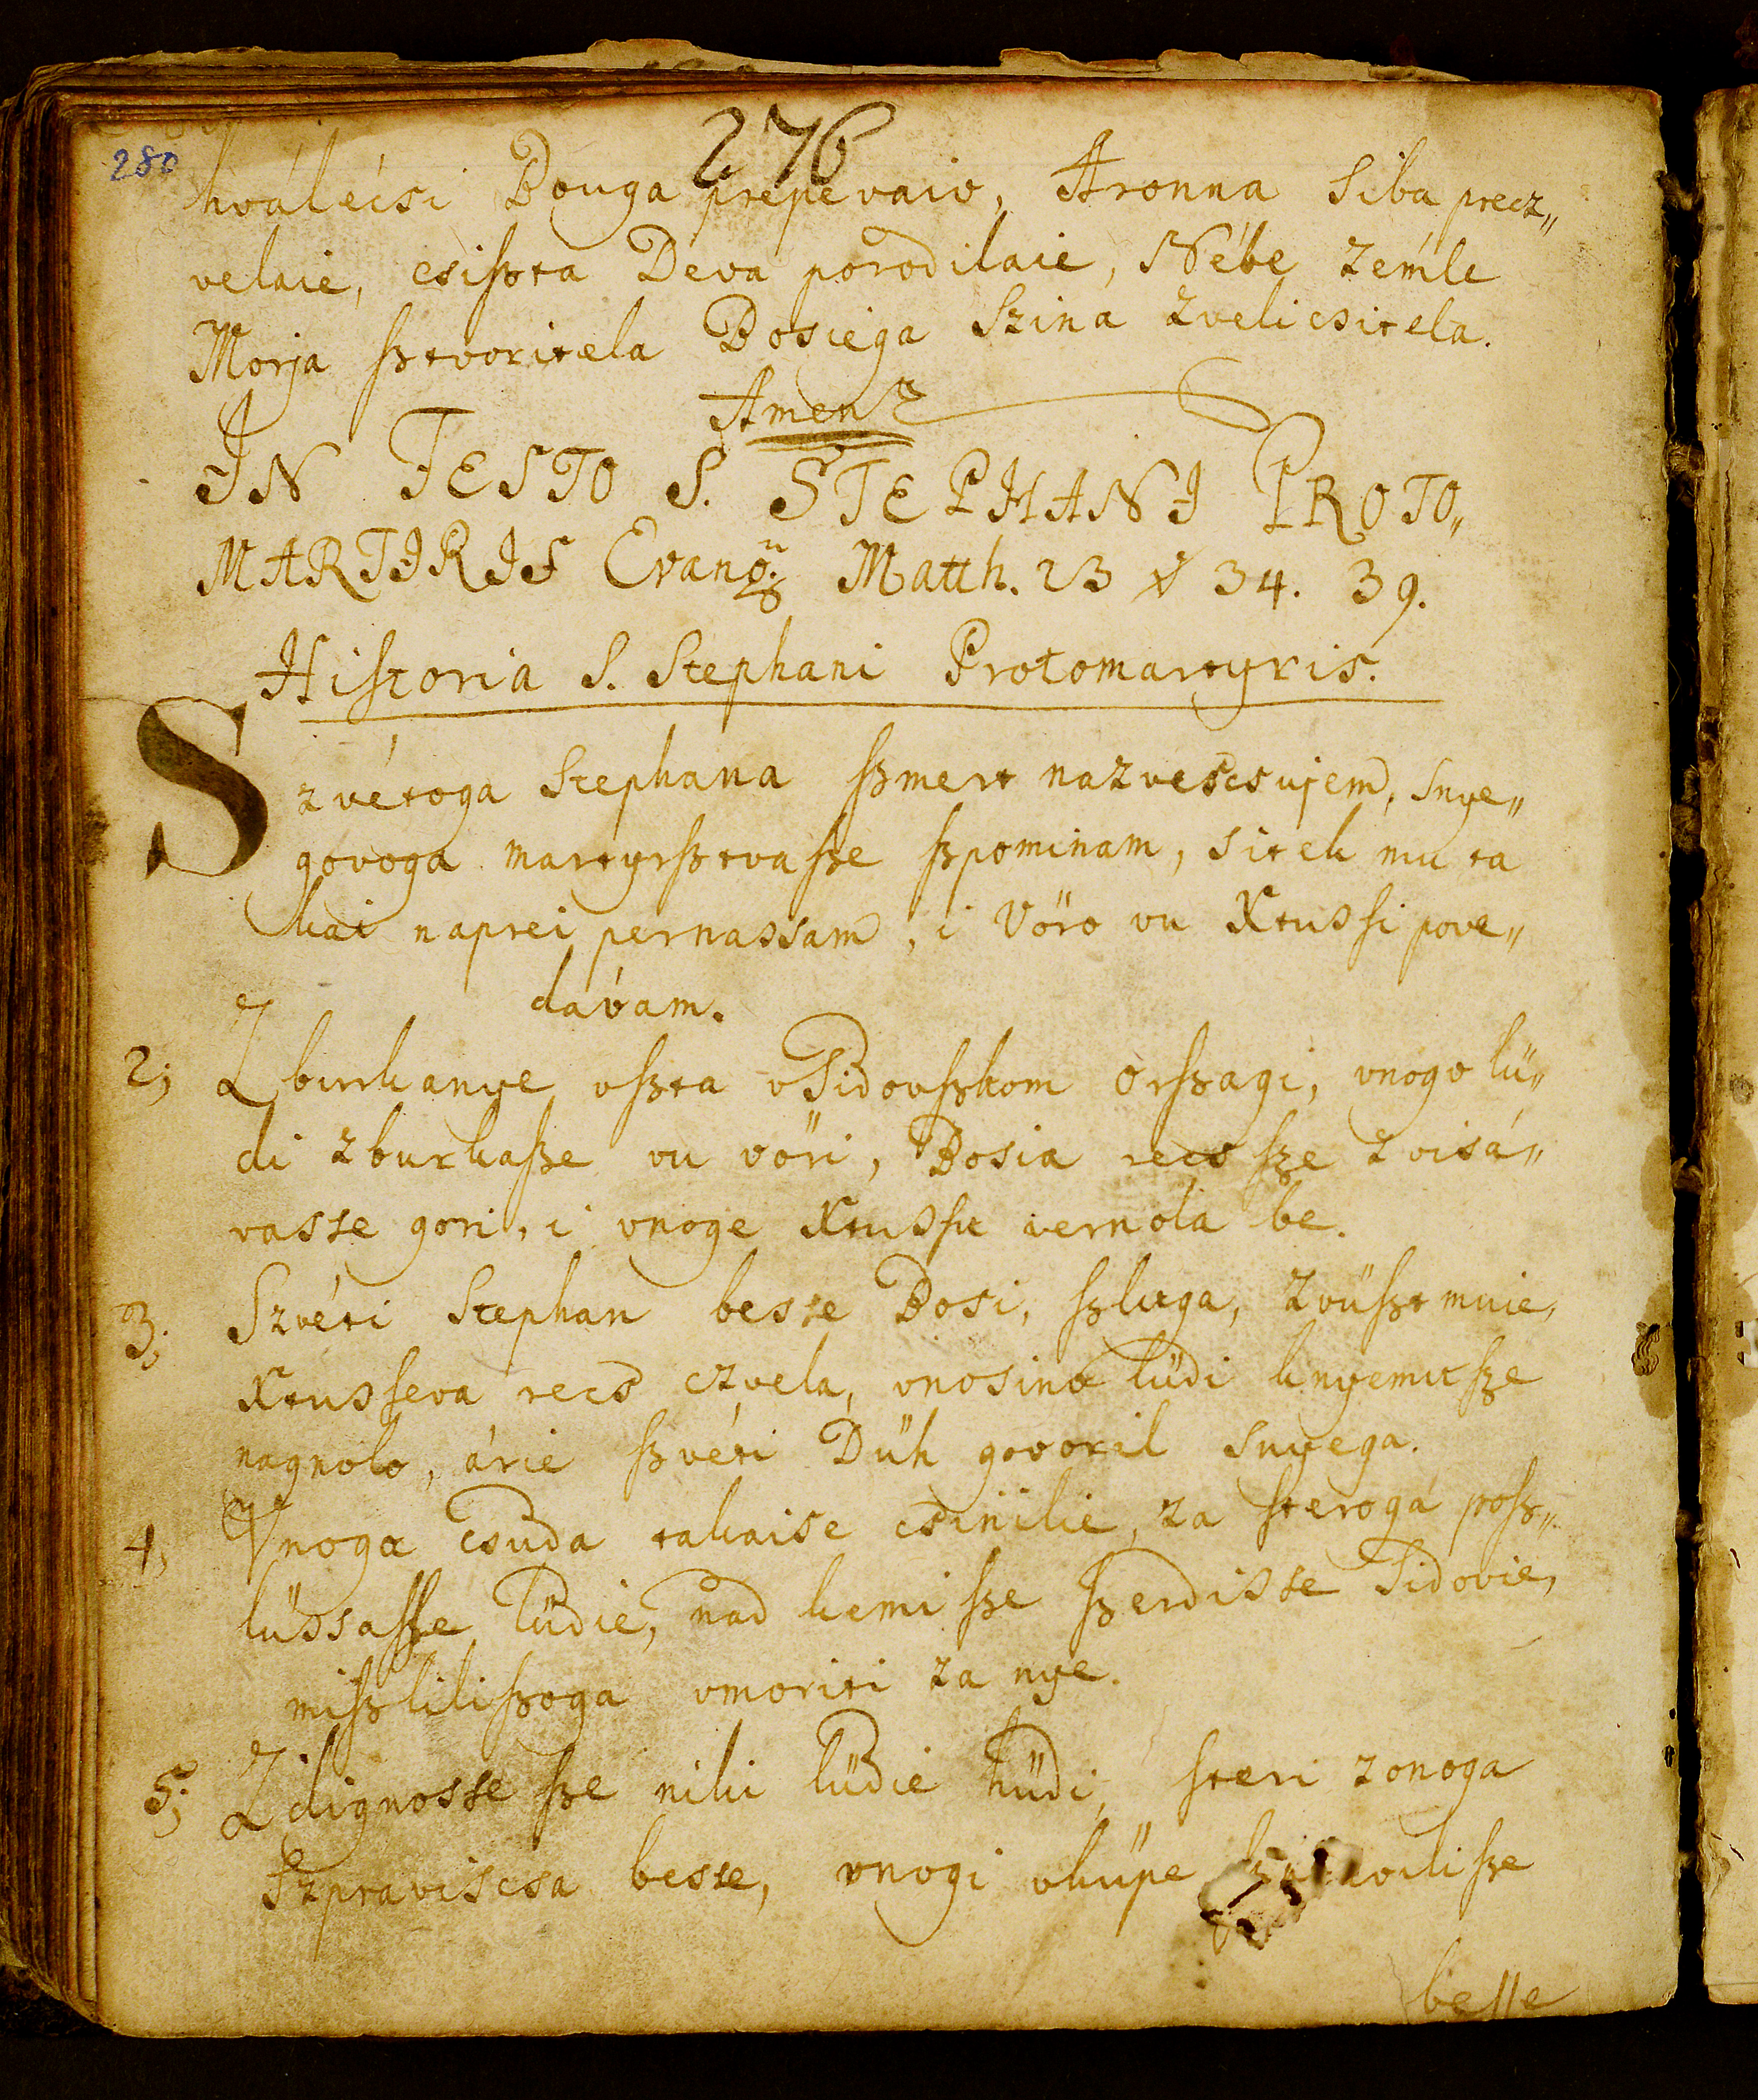 276
280
hválécsi Bouga prepévaio, Aronna siba precz„
velaie, csiſzta Déva porodilaie, Nébe zémle
Morja ſztvoritela Bosiega Szina zvelicsitela.
Amen
IN FESTO S. STEPHANI PROTO„
MARTIRIS Evang. Matth. 23 ℣ 34. 39.
Hiſtoria S. Stephani Protomartyris.
Szvétoga Stephana ſzmert nazvescsujem, snye„
govoga martyrſztvaſze ſzpominam, sitek mu ta
kai naprei pernassam, i Vöro vu Xtusſi pove„
dávam.
2; Zburkanye vſzta vSidovſzkom Orſzagi, vnogo lü„
di zburkaſze vu vöri, Bosia recs ſze zvisá„
vasse gori, i vnoge Xtusſu vernola be.
3; Szvéti Stephan besse Bosi, ſzluga, zvüſzt muie,
Xtusſeva recs czvela, vnosina lüdi knyemu ſze
nagnolo, árie ſzvéti Düh govoril snyega.
4, Vnoga csuda takaise csinilie, za ſteroga poſz„
lüssaſſe lüdie, nad kemi ſze ſzerdisse Sidovie,
miſzliliſzoga vmoriti za nye.
5; Zdignosse ſze niki lüdie hüdi, ſteri zonoga
Szpraviscsa besse, vnogi vküpe ſze
beſſe